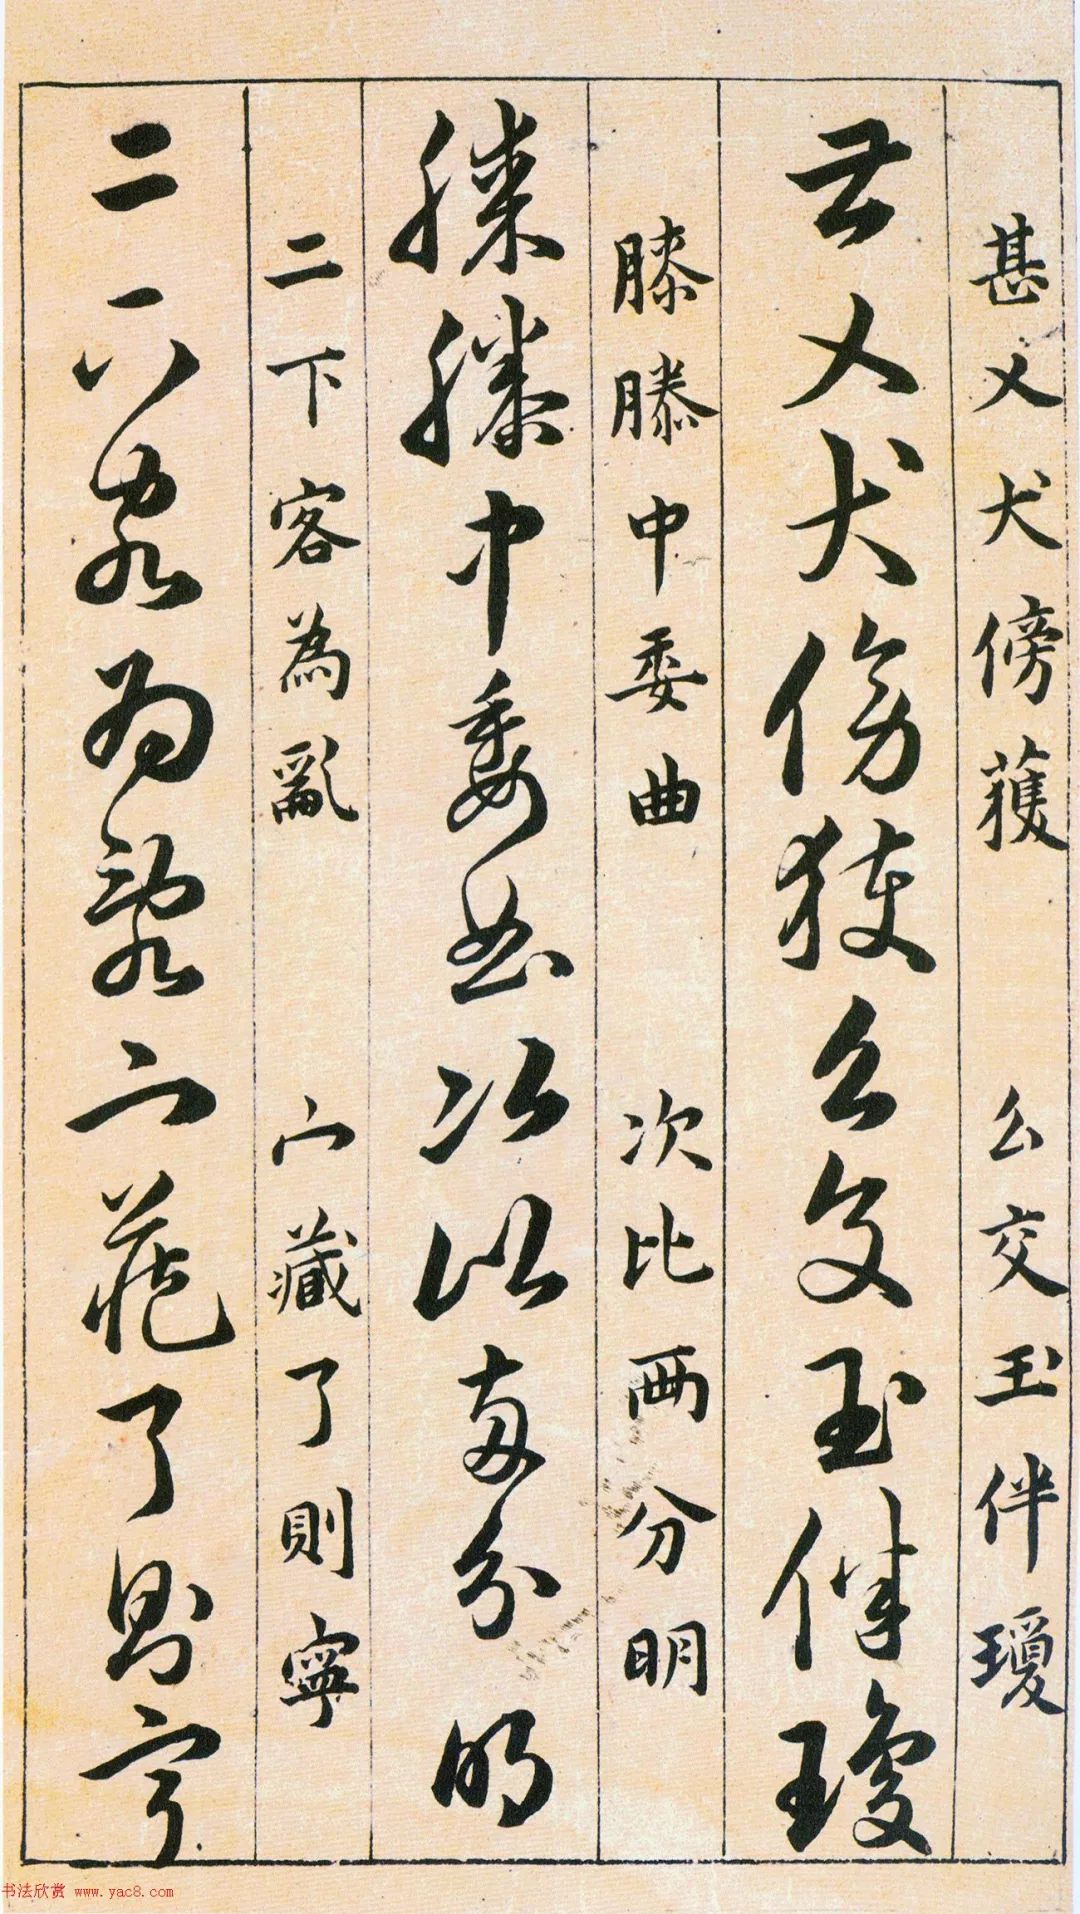 甚乂犬傍获 幺交玉伴瓊
甚乂犬傍獲幺交玉伴瓊
膝滕中委曲 次比兩分明
膝滕中委曲次比兩分明
二下客為亂 亠藏了則寧
二下客為亂亠藏了則寧
书法欣赏 www.yac8.com